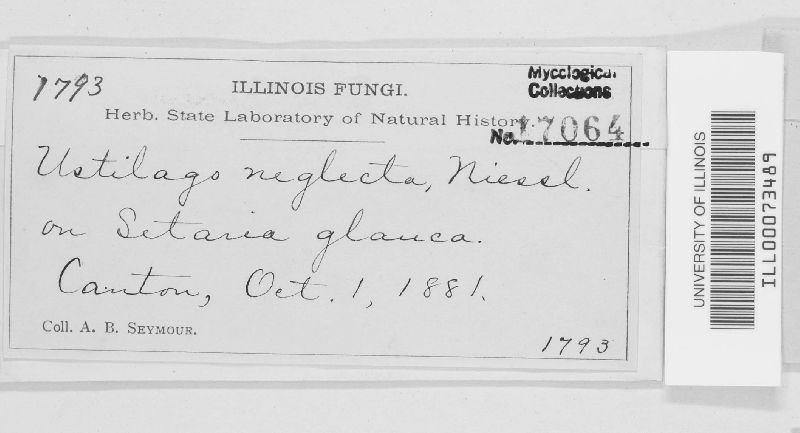 1793
ILLINOIS FUNGI.
Mycological
Collections
Herb. State Laboratory of Natural History.
No. 17064
Ustilago neglecta, Niessl.
on Setaria glauca.
Canton, Oct. 1, 1881.
Coll. A. B. SEYMOUR.
1793
UNIVERSITY OF ILLINOIS
ILL00073489